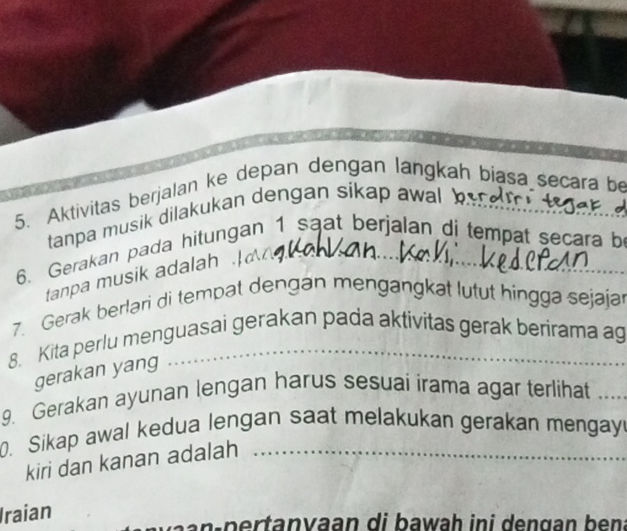 5. Aktivitas berjalan ke depan dengan langkah biasa secara be
tanpa musik dilakukan dengan sikap awal berdiri tegak d
6. Gerakan pada hitungan 1 saat berjalan di tempat secara be
tanpa musik adalah langkahkan kaki kedepan
7. Gerak berlari di tempat dengan mengangkat lutut hingga sejajar
8. Kita perlu menguasai gerakan pada aktivitas gerak berirama ag
gerakan yang
9. Gerakan ayunan lengan harus sesuai irama agar terlihat ....
0. Sikap awal kedua lengan saat melakukan gerakan mengayu
kiri dan kanan adalah
Uraian
yaan-pertanyaan di bawah ini dengan ben